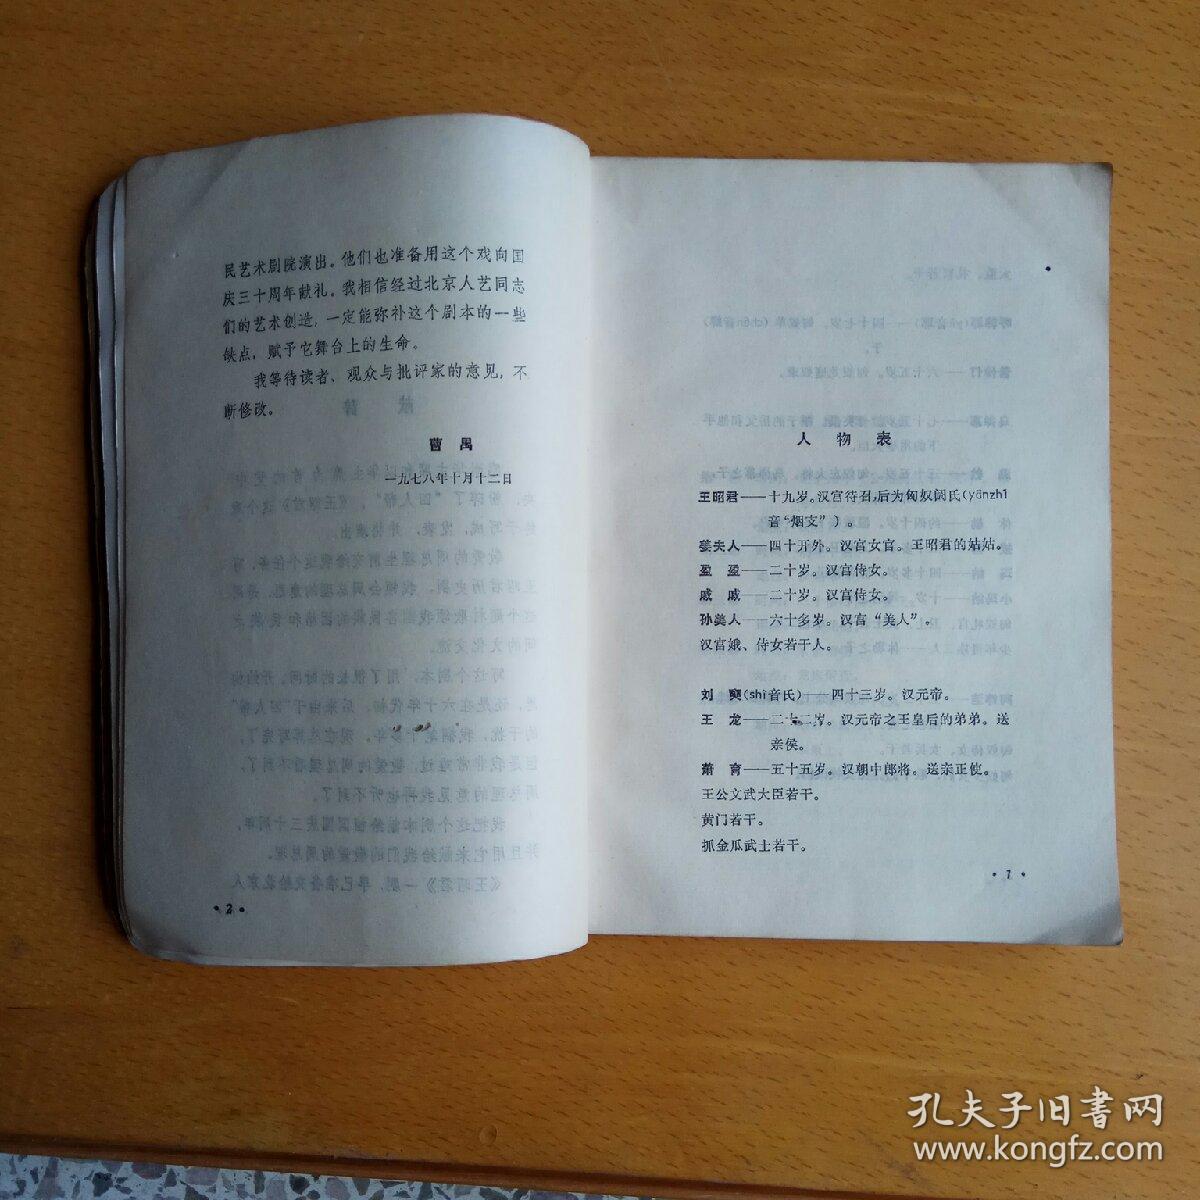 民艺术剧院演出。他们也准备用这个戏向国
庆三十周年献礼。我相信经过北京人艺同志
们的艺术创造，一定能弥补这个剧本的一些
缺点，赋予它舞台上的生命。
我等待读者、观众与批评家的意见，不
断修改。
曹禺
一九七八年十月十二日
·2·
人物表
王昭君——十九岁。汉宫待召，后为匈奴阏氏(yānzhī
音“烟支”)。
姜夫人——四十开外。汉宫女官。王昭君的姑姑。
盈盈——二十岁。汉宫侍女。
戚戚——二十岁。汉宫侍女。
孙美人——六十多岁。汉宫“美人”。
汉宫娥、侍女若干人。
刘奭(shì音氏)——四十三岁。汉元帝。
王龙——二十二岁。汉元帝之王皇后的弟弟。送
亲侯。
萧育——五十五岁。汉朝中郎将。送亲正使。
王公文武大臣若干。
黄门若干。
抓金瓜武士若干。
·1·
孔夫子旧书网
www.kongfz.com